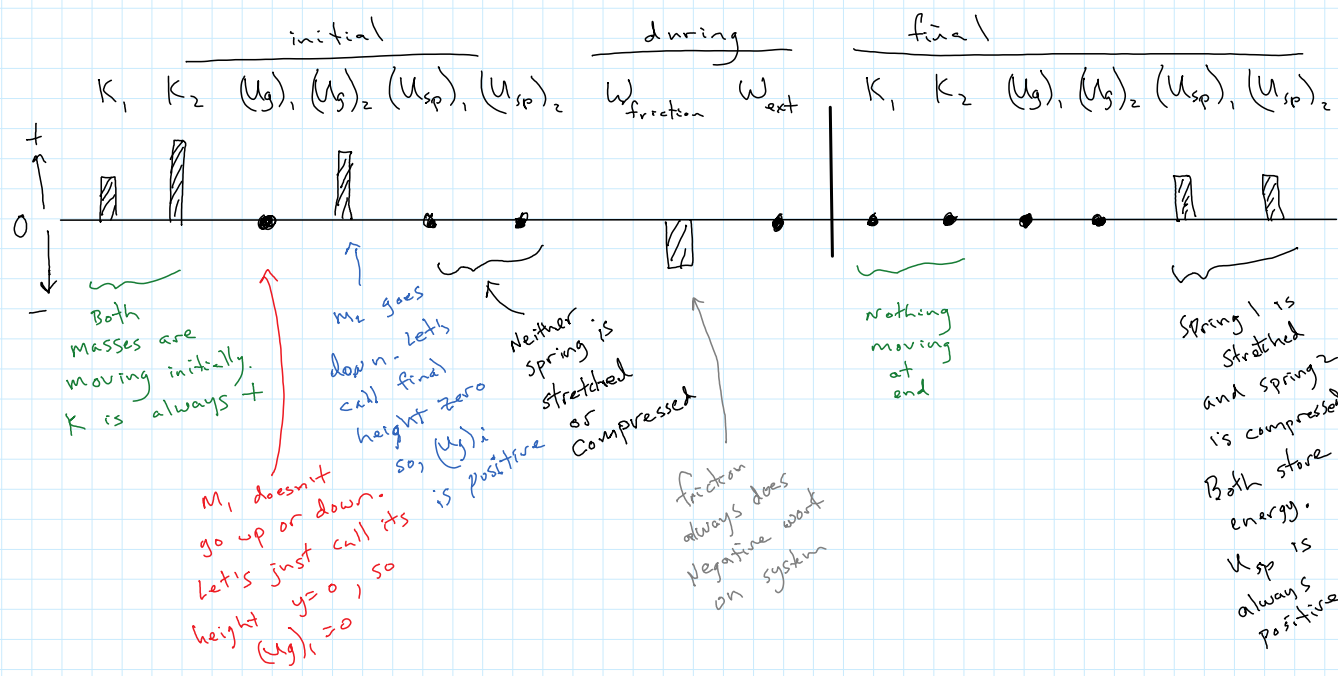 initial
during
final
K₁ K₂ (Ug)₁ (Ug)₂ (Usp)₁ (Usp)₂
W friction
W ext
K₁ K₂ (Ug)₁ (Ug)₂ (Usp)₁ (Usp)₂
+
0
-
Both
masses are
moving initially.
K is always +
M₁ doesn't
go up or down.
Let's just call its
height y=0, so
(Ug)₁=0
m₂ goes
down. Let's
call final
height zero
so, (Ug)i
is positive
Neither
spring is
stretched
or
compressed
friction
always does
Negative work
on system
Nothing
moving
at
end
Spring 1 is
stretched
and spring 2
is compressed
Both store
energy.
Usp is
always
positive